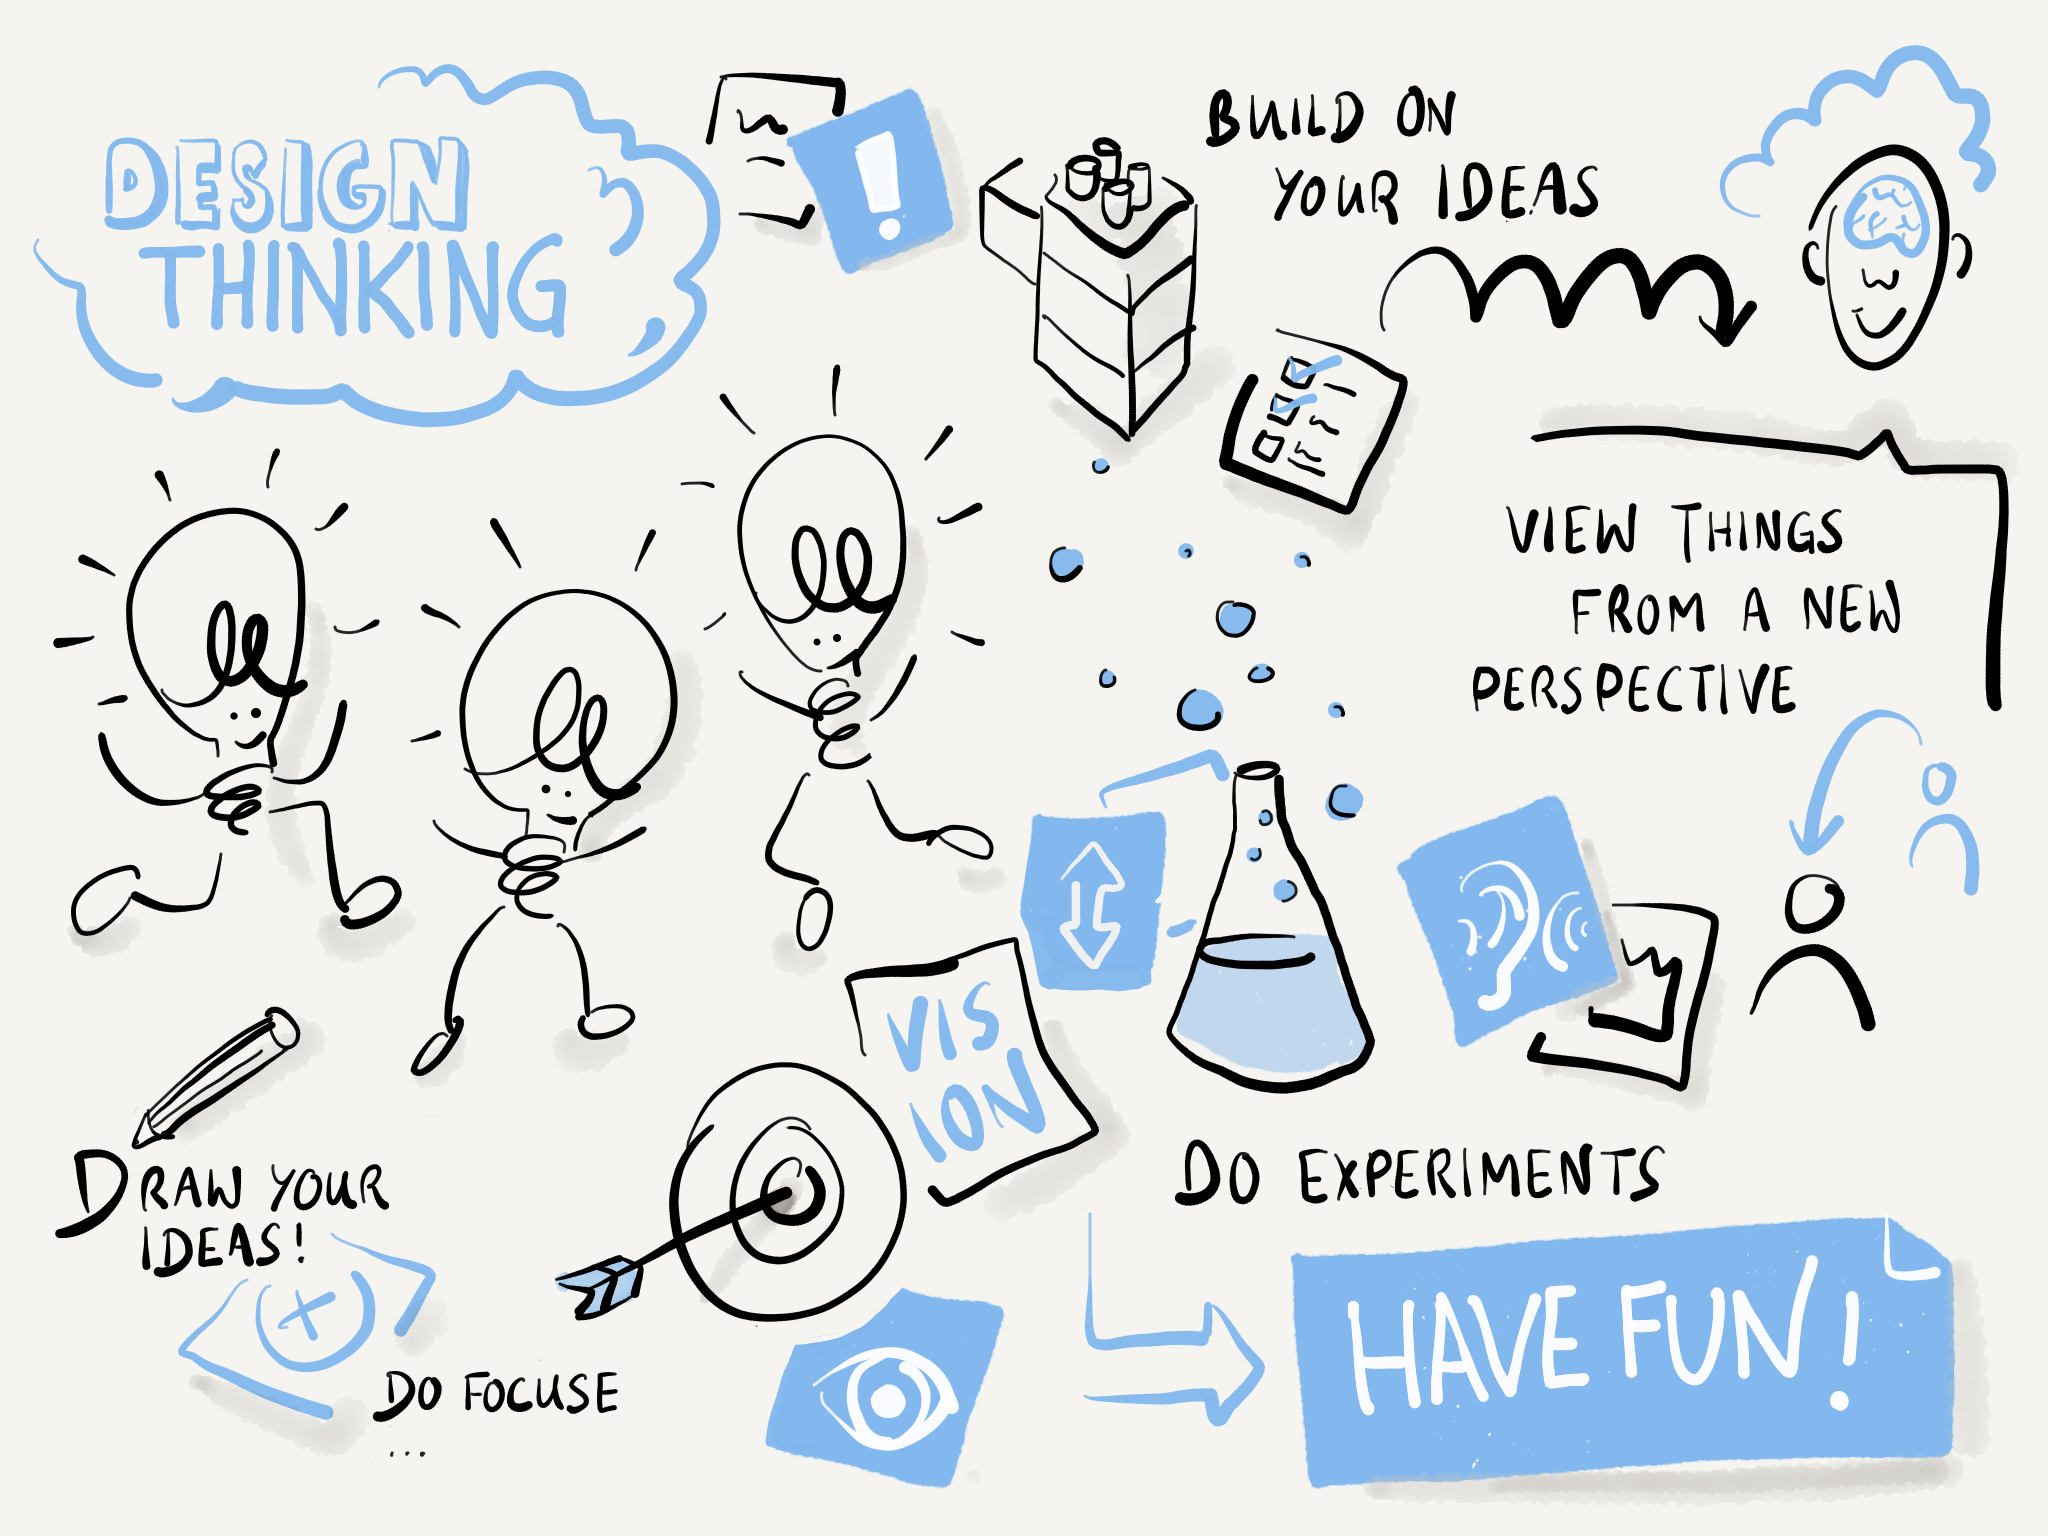 DESIGN
THINKING
BUILD ON
YOUR IDEAS
VIEW THINGS
FROM A NEW
PERSPECTIVE
VIS
ION
DRAW YOUR
IDEAS!
DO FOCUSE
...
DO EXPERIMENTS
HAVE FUN!